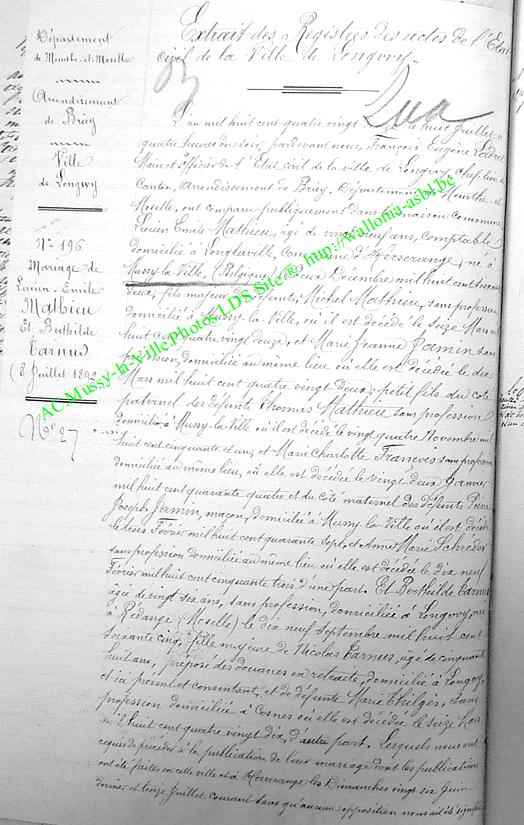 Extrait des Registres des actes de l'Etat
civil de la Ville de Longwy.
Département
de Meurthe-et-Moselle
Arrondissement
de Briey
Ville
de Longwy
N° 196
Mariage de
Lucien-Emile
Mathieu
Et Berthilde
Carnus
(8 Juillet 1892
N° 27
L'an mil huit cent quatre vingt le huit Juillet à
quatre heures du soir, pardevant nous, François Eugène
Maire et officier de l'Etat civil de la ville de Longwy, chef lieu de
Canton, Arrondissement de Briey, Département de Meurthe et
Moselle, ont comparu publiquement dans la maison commune
Lucien Emile Mathieu, âgé de vingt neuf ans, comptable
domicilié à Longlaville, commune d'Herserange, né à
Mussy la Ville, (Belgique) le deux Décembre mil huit cent soixante
deux, fils majeur de défunts, Michel Mathieu, sans profession
domicilié à Mussy-la-Ville, où il est décédé le seize Mars mil
huit cent quatre vingt douze, et Marie Jeanne Jamin sans
profession, domiciliée au même lieu où elle est décédée le dix
Mars mil huit cent quatre vingt deux; petit fils du côté
paternel des défunts Thomas Mathieu sans profession
domicilié à Mussy-la-Ville où il est décédé le vingt quatre Novembre mil
huit cent cinquante et un, et Marie Charlotte François sans profession
domiciliée au même lieu, où elle est décédée le vingt deux Janvier
mil huit cent quarante quatre et du côté maternel des défunts Pierre
Joseph Jamin, maçon, domicilié à Mussy la Ville où il est décédé
le trois Février mil huit cent quarante sept, et Anne Marie Schréder
sans profession domiciliée au même lieu où elle est décédée le dix neuf
Février mil huit cent cinquante trois d'une part. Et Berthilde Carnus
âgée de vingt six ans, sans profession, domiciliée à Longwy, née
à Rédange (Moselle) le dix neuf Septembre mil huit cent
soixante cinq, fille majeure de Nicolas Carnus, âgé de cinquante
huit ans, préposé des douanes en retraite, domicilié à Longwy,
et ici présent et consentant, et de défunte Marie Thilges, sans
profession domiciliée à Cosnes où elle est décédée le seize Mars
mil huit cent quatre vingt dix, d'autre part. Lesquels nous ont
requis de procéder à la publication de leur mariage dont les publications
ont été faites en cette ville et à Herserange les Dimanches vingt six Juin
dernier et trois Juillet courant sans qu'aucune opposition nous ait été signifiée
AC-Mussy-la-Ville.Photos LDS.Site® http://wallonia-asbl.be